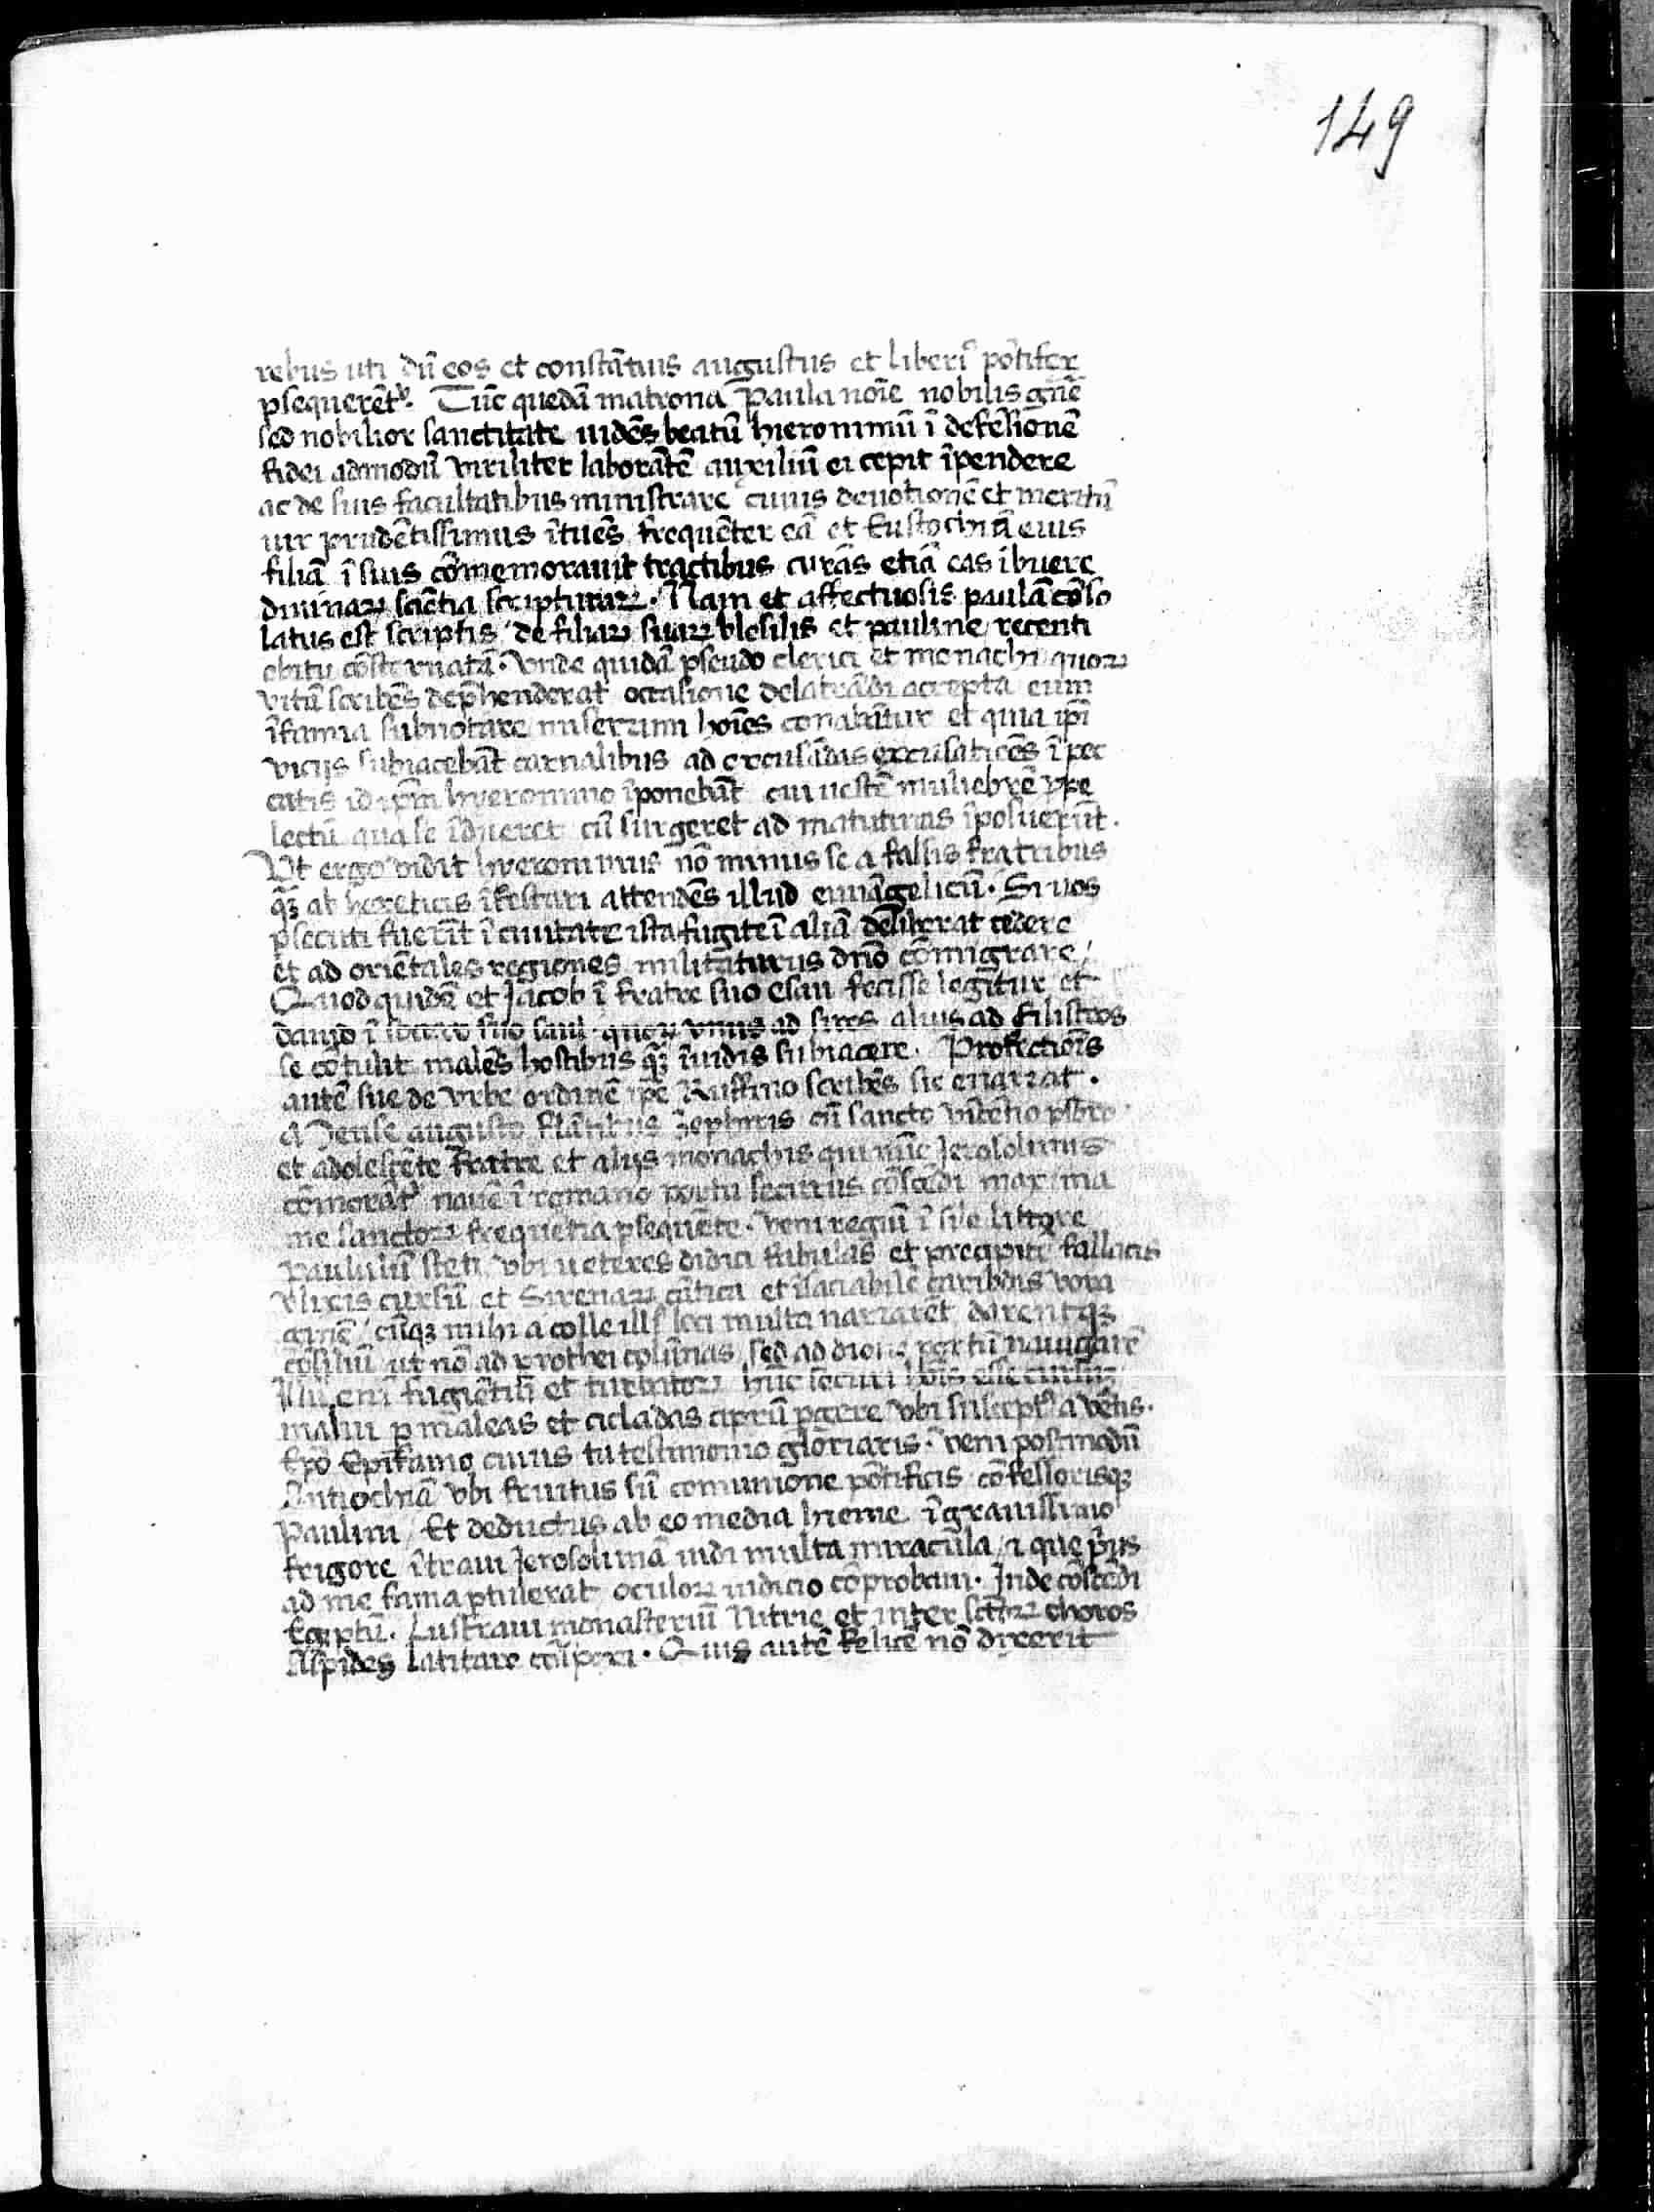 149
rebus uti dū eos et constātius augustus et liberiꝰ pōtifex
ꝑsequerētᷣ. Tūc quedā matrona Paula noīe nobilis gn̄e
sed nobilior sanctitate uidēs beatū hieronimū ī defēsionē
fidei admodū viriliter laborātē auxiliū ei cepit īpendere
ac de suis facultatibus ministrare cuius deuotionē et meritū
uir prudētissimus ītuēs frequēter eā et Eustochiā eius
filiā ī suis cōmemorauit tractibus curās etiā eas ībuere
diuinaꝝ sciētia scripturaꝝ. Nam et affectuosis paulā cōso
latus est scriptis de filiaꝝ suaꝝ blesilis et pauline recenti
obitu cōsternatā. Vnde quidā pseudo clerici et monachi quoꝝ
vitā scribēs deꝓhenderat occasione delatrādi accepta eum
īfamia subnotare miserrimi hoīes conabātur et quia ip̄i
vicijs subiacebāt carnalibus ad excusādas excusatiōes ī pec
catis id ip̄m hyeronimo īponebāt cui uestē muliebrē
lectū qua se īdueret cū surgeret ad matutinas īposuerūt.
Vt ergo vidit hyeronimus nō minus se a falsis fratribus
qꝫ ab hereticis īfestari attendēs illud euuāgelicū. Si uos
ꝑsecuti fuerīt ī ciuitate ista fugite ī aliā deliberat cedere
et ad oriētales regiones militaturus dn̄o cōmigrare /
Quod quidē et Jacob ī fratre suo esau fecisse legitur et
dauid ī socero suo saul. quoꝝ vnus ad siros alius ad filisteos
se cōtulit malēs hostibus qꝫ īuidis subiacere. Profectiōis
autē sue de vrbe ordinē ip̄e Ruffino scribēs sic enarrat.
Mense augusto flātibus zephiris cū sancto vincētio pſbro
et adolescēte fratre et alijs monachis qui nūc Jerosolimis
cōmorātᷣ nauē ī romano portu securus cōscēdi maxima
me sanctoꝝ frequētia ꝑsequēte. Veni regiū ī sileo littore
paululū steti vbi ueteres didici fabulas et precipite fallacis
Vlixis cursū et Sirenaꝝ cātica et īsaciabilē caribdis vora
ginē / cūqꝫ mihi a colle illꝰ loci multa narrarēt darentqꝫ
cōsiliū ut nō ad prothei colūnas sed ad ione portū nauigarē
Illū enī fugiētiū et turbatoꝝ hūc securi hoīs esse cursū
malui ꝑ maleas et cicladas ciprū ꝑgere vbi susceptꝰ a venis.
Epō Epifanio cuius tu testimonio gloriaris. Veni postmodū
Antiochiā vbi fruitus sū comunione pōtificis cōfessorisqꝫ
Paulini / Et deductus ab eo media hieme ī grauissimo
frigore ītraui Jerosolimā uidi multa miracula / ⁊ que pͥus
ad me fama ꝑtulerat oculoꝝ iudicio cōprobaui. Inde cōtēdi
Egiptū. Lustraui monasteriū Nitrie et inter sctōꝝ choros
Aspides latitare cōperi. Quis autē felicē nō dixerit